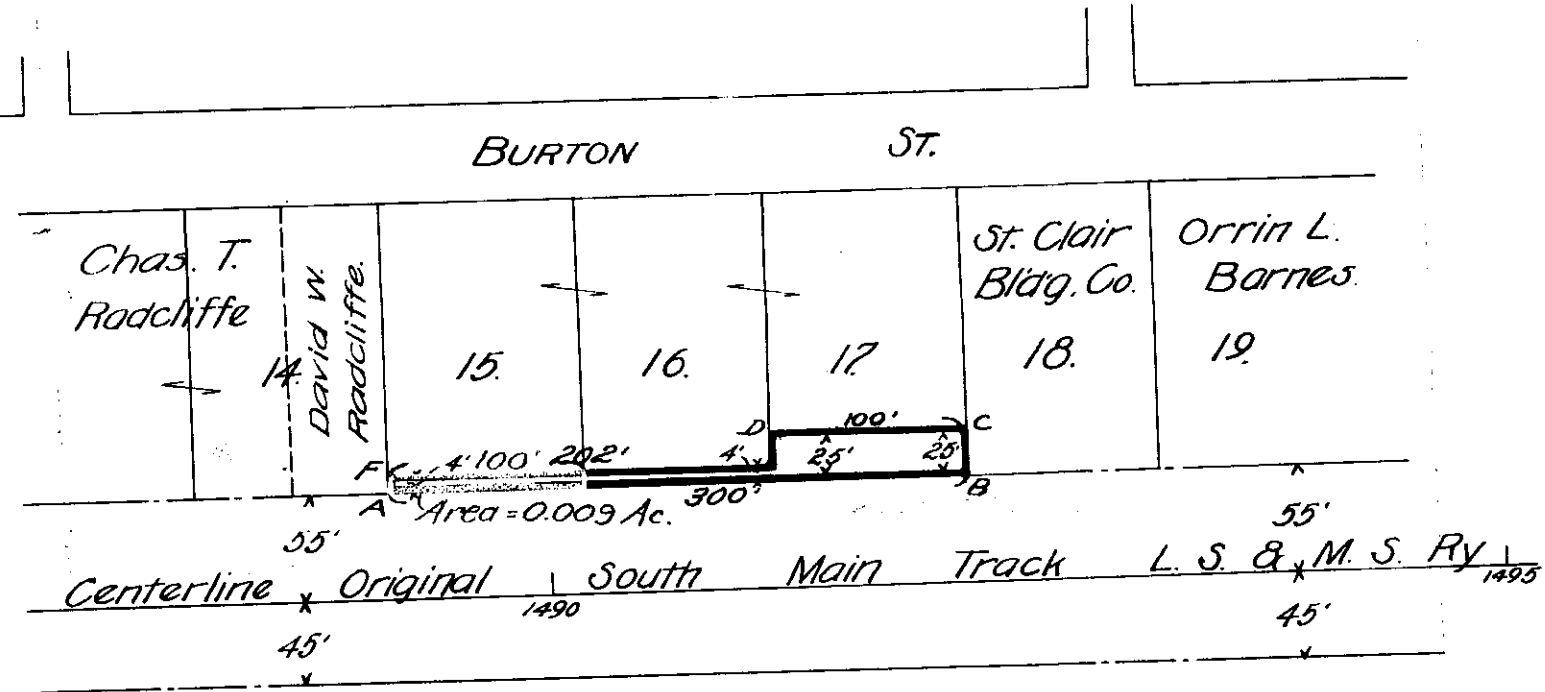 BURTON ST.
Chas. T.
Radcliffe
14.
David W.
Radcliffe.
15.
16.
17.
St. Clair
Bldg. Co.
18.
Orrin L.
Barnes.
19.
D 100' C
F 4' 100' 202' 4' 25' 25'
A 300' B
Area = 0.009 Ac.
55' 55'
Centerline Original South Main Track L. S. & M. S. Ry
1490 1495
45' 45'